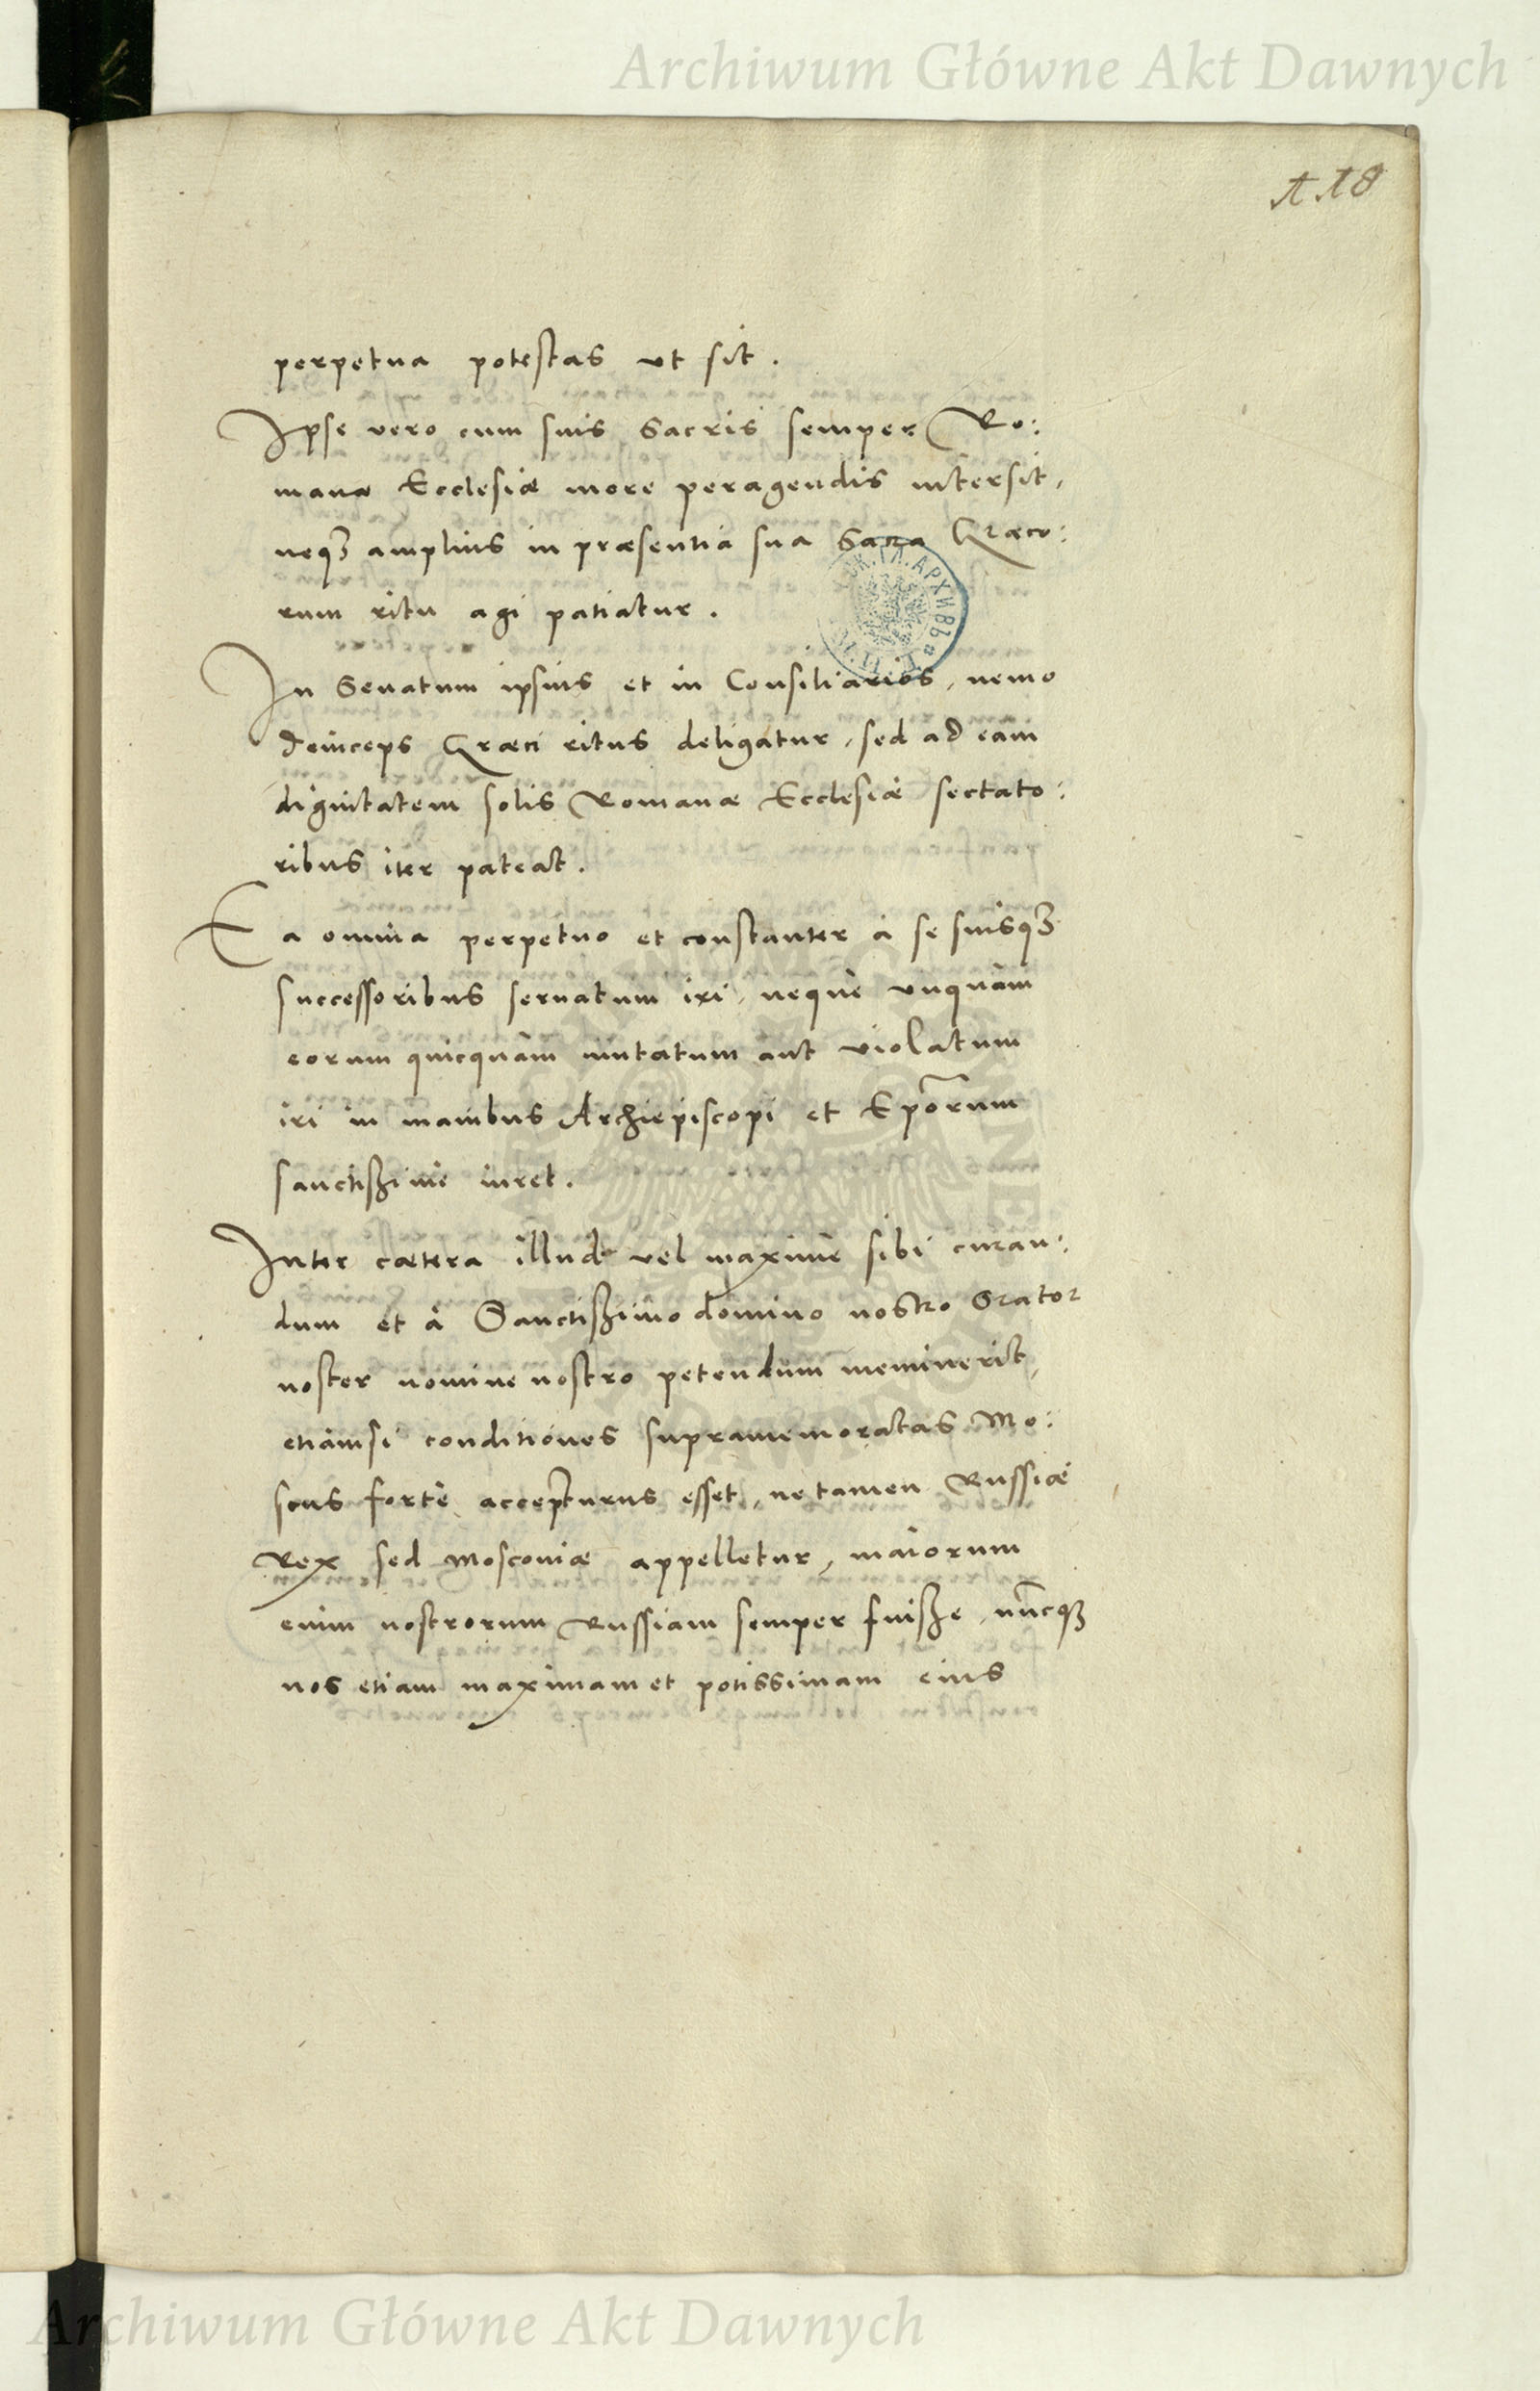 Archiwum Główne Akt Dawnych
118
perpetua potestas ut sit.
Ipse vero cum suis Sacris semper Ro:
manæ Ecclesiæ more peragendis intersit,
neqꝫ amplius in præsentia sua Sacra Græco:
rum ritu agi patiatur.
In Senatum ipsius et in Consiliarios, nemo
deinceps Græci ritus deligatur, sed ad eam
dignitatem solis Romanæ Ecclesiæ sectato:
ribus iter pateat.
Ea omnia perpetuo et constanter à se suisqꝫ
successoribus seruatum iri, neque vnquam
eorum quicquam mutatum aut violatum
iri in manibus Archiepiscopi et Ep̄orum
sanctißime iuret.
Inter cætera illud vel maxime sibi curan:
dum et â Sanctißimo domino nostro Orator
noster nomine nostro petendum meminerit,
etiamsi conditiones supramemoratas Mo:
scus fortè accepturus esset, ne tamen Russiæ
Rex sed Moscouiæ appelletur, maiorum
enim nostrorum Russiam semper fuiße, nuncqꝫ
nos etiam maximam et potissimam eius
Archiwum Główne Akt Dawnych